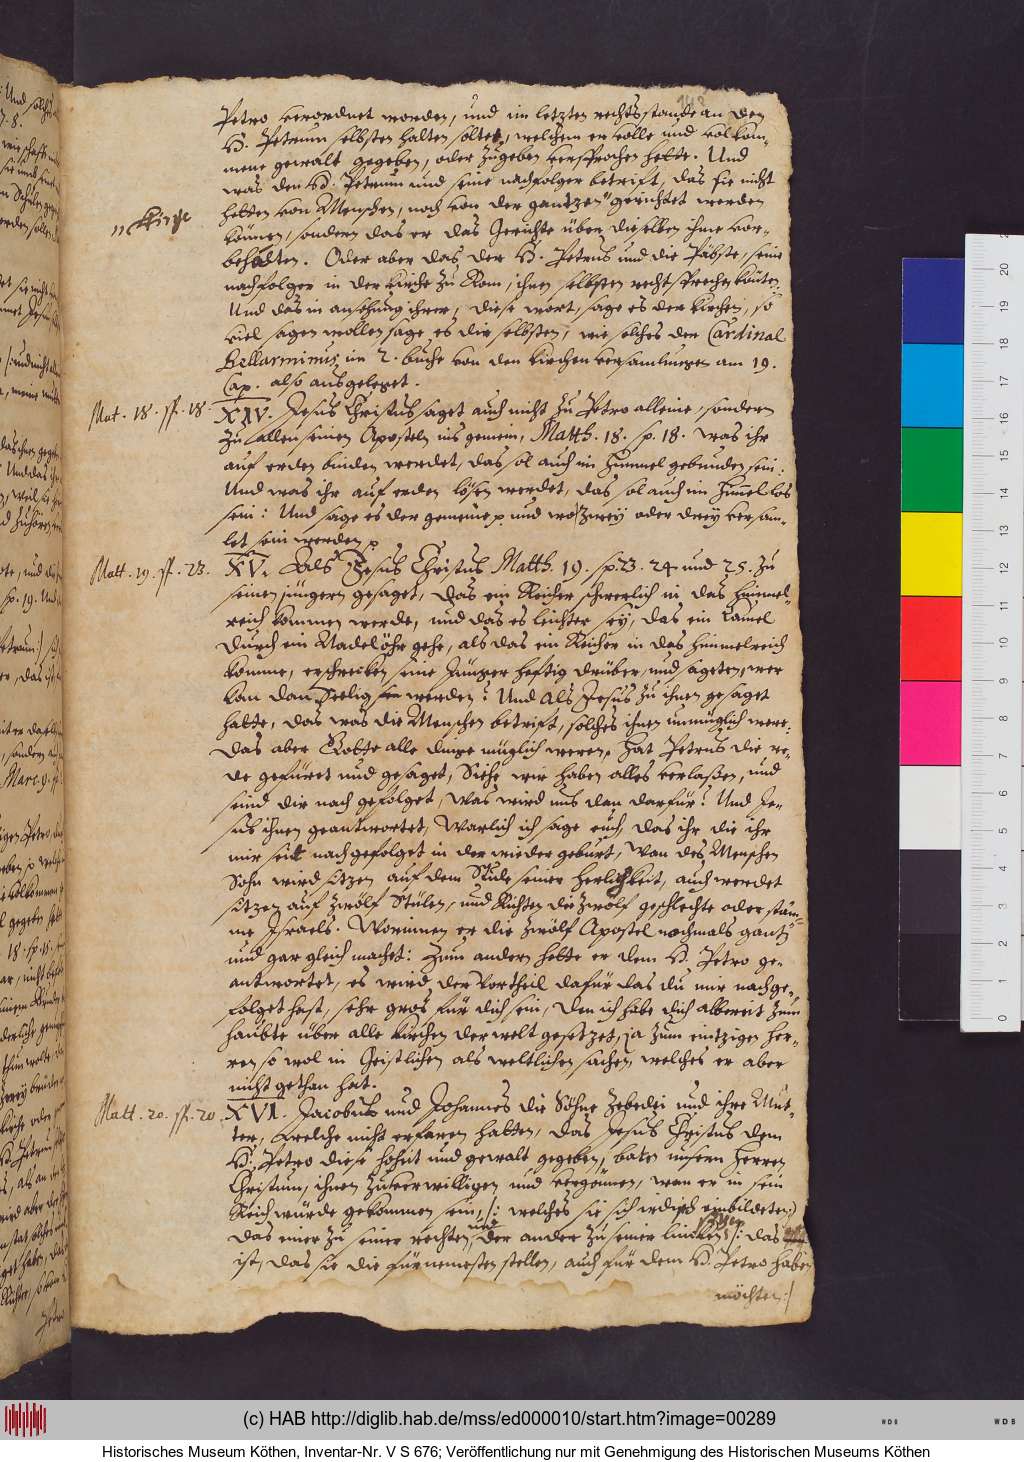 Petro verordnet worden, und im letzten rechtsstande an den
H. Petrum selbsten halten solte, welchem er volle und volkom-
mene gewalt gegeben, oder zugeben versprochen hette. Und
was den H. Petrum und seine nachfolger betrift, das sie nicht
hetten von Menschen, noch von der gantzen " gerichtet werden
" Kirche
können, sondern das er das Gerichte über dieselben ihme vor-
behalten. Oder aber das der H. Petrus und die Päbste, seine
nachfolger in der kirche zu Rom, ihnen selbsten recht sprechen könten.
Und das in ansehung ihrer, diese wort, sage es der kirchen, so
viel sagen wollen sage es dir selbsten, wie solches der Cardinal
Bellarminus im 2. buche von den kirchen versamlungen am 19.
Cap. also ausgeleget.
Mat. 18. ℣. 18.
XIV. Jesus Christus saget auch nicht zu Petro alleine, sondern
zu allen seinen Aposteln ins gemein, Matth. 18. sp. 18. was ihr
auf erden binden werdet, das sol auch im himmel gebunden sein:
Und was ihr auf erden lösen werdet, das sol auch im himel los
sein: Und sage es der gemeine und wo zwey oder drey versam-
let sein werden
Matt. 19. ℣. 23.
XV. Als Jesus Christus Matth. 19. sp. 23. 24 und 25. zu
seinen jüngern gesaget, das ein Reicher schwerlich in das himmel-
reich kommen werde, und das es leichter sey, das ein Camel
durch ein Nadelöhr gehe, als das ein Reicher in das himmelreich
komme, erschrecken seine Jünger heftig drüber, und sageten, wer
kan dan seelig werden? Und als Jesus zu ihnen gesaget
hatte, das was die Menschen betrift, solches ihnen unmüglich were,
das aber Gotte alle dinge müglich weren, hat Petrus die re-
de gefüret und gesaget, Siehe wir haben alles verlaßen, und
seind dir nach gefolget, was wird uns dan darfür? Und Je-
sus ihnen geantwortet, Warlich ich sage euch, das ihr die ihr
mir seit nachgefolget in der wieder geburt, wan des Menschen
Sohn wird sitzen auf dem Stule seiner herlichkeit, auch werdet
sitzen auf zwölf Stülen, und Richten die zwölf geschlechte oder stäm-
me Israels. Worinnen er die zwölf Apostel nochmals gantz
und gar gleich machet: Zum andern hette er dem H. Petro ge-
antwortet, es wird der Vortheil dafür das du mir nachge-
folget hast, sehr gros für dich sein, den ich habe dich albereit zum
haubte über alle kirchen der welt gesetzet, ja zum eintzigen her-
ren so wol in Geistlichen als weltlichen sachen, welches er aber
nicht gethan hat.
Matt. 20. ℣. 20.
XVI. Jacobus und Johannes die Söhne Zebedei und ihre Mut-
ter, welche nicht erfaren hatten, das Jesus Christus dem
H. Petro diese hoheit und gewalt gegeben, baten unsern herren
Christum, ihnen zuverwilligen und vergönnen, wan er in sein
Reich würde gekommen sein, /: welches sie sich irdisch einbildeten :/
das einer zu seiner rechten, und der andere zu seiner lincken sitzen /: das
ist, das sie die fürnemesten stellen, auch für dem H. Petro haben
möchten :/
(c) HAB http://diglib.hab.de/mss/ed000010/start.htm?image=00289
Historisches Museum Köthen, Inventar-Nr. V S 676; Veröffentlichung nur mit Genehmigung des Historischen Museums Köthen